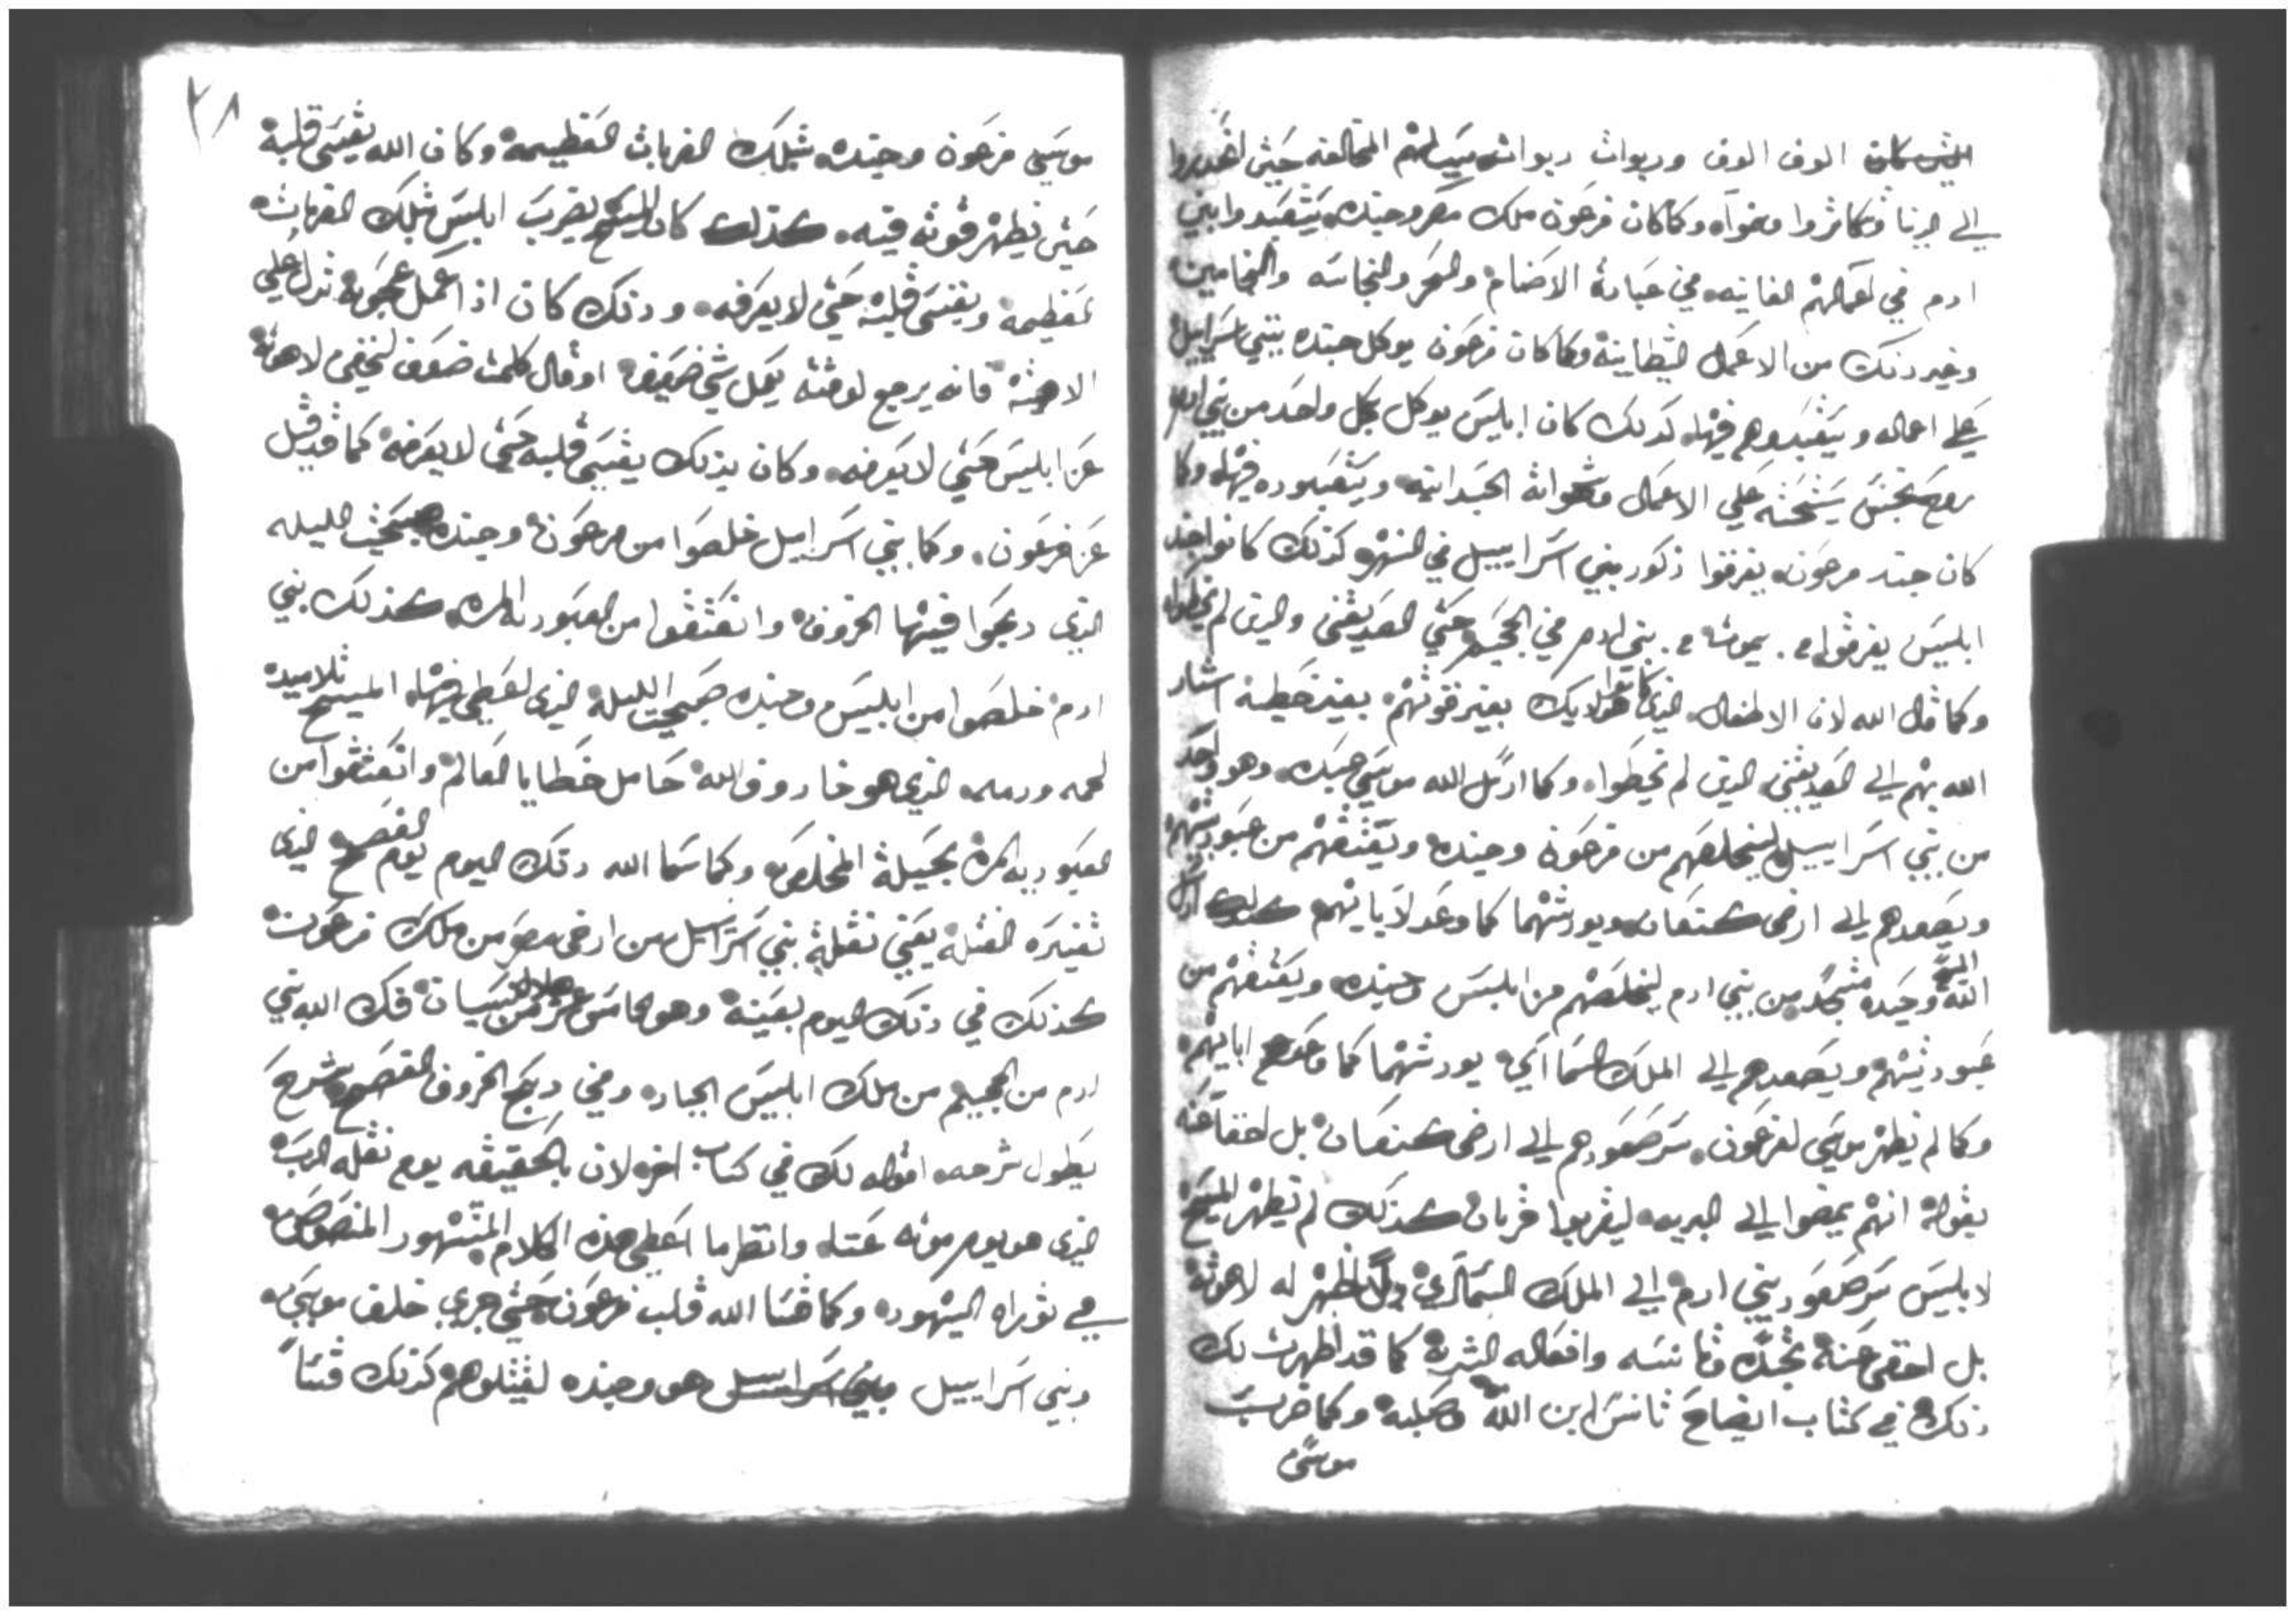 الوف الوف وربوات ربوات بسبب المخالفه حتي انحدروا
الي الدنيا فتكاثروا ونمواه وكما كان فرعون ملك مصر وجنده يتعبدوا بني
ادم في اعمالهم الفانيه في عبادة الاصنام والسحر والنجاسه والتنجامين
وغير ذلك من الاعمال الشيطانية وكما كان فرعون يوكل جنده ببني اسراييل
علي اعماله ويتعبدوهم فيها كذلك كان ابليس يوكل بكل واحد من بني ادم
روح نجس يسخته علي الاعمال وشهواته الجسدانيه ويتعبدوه فيها وكما
كان جند فرعون يغرقوا ذكور بني اسراييل في النهر كذلك كانوا جند
ابليس يغرقوا بموت بني ادم في الجحيم حتي الصديقين والدين لم يخطوا
وكما قال الله لان الاطفال الذي كانوا هولايك بغير قوتهم بغير خطية اشار
الله بهم الي الصديقين الدين لم يخطوا وكما ارسل الله موسي عبده وهو واحد
من بني اسراييل ليخلصهم من فرعون وجنده ويعتقهم من عبوديتهم
ويصعدهم الي ارض كنعان ويورثهما كما وعد لاباياتهم كذلك ارسل
الله وحيده متجسد من بني ادم ليخلصهم من ابليس وجنده ويعتقهم من
عبوديتهم ويصعدهم الي الملك السمااي يورثهما كما وعد ابايهم
وكما لم يظهر موسي لفرعون سر صعودهم الي ارض كنعان بل اخفا عنه
بقوله انهم يمضوا الي البريه ليقربوا قربان كذلك لم يظهر المسيح
لابليس سر صعود بني ادم الي الملك السماي ولا اظهر له لاهوته
بل اخفي عنه بجسده وتانسه وافعاله البشرية كما قد اظهرت لك
ذلك في كتاب ايضاح تانس ابن الله وصلبه وكما ضرب
موسي
٢٨
موسي فرعون وجنده بتلك الضربات العظيمة وكان الله يقسي قلبه
حتي تظهر قوته فيه كذلك كان المسيح يضرب ابليس بتلك الضربات
عظيمة ويقسي قلبه حتي لا يعرفه وذلك كان اذ اعمل عجوبة تدل علي
لاهوته فانه يرجع لوقته يعمل شي ضعيف او قال كلمت ضعف ليخفي لاهوته
عن ابليس حتي لا يعرفه وكان بذلك يقسي قلبه حتي لا يعرفه كما قد قيل
عن فرعون وكما بني اسراييل خلصوا من فرعون وجنده صبيحت الليله
الذي دبحوا فيها الخروف وانعتقوا من العبوديه المره كذلك بني
ادم خلصوا من ابليس وجنده صبيحت الليلة الذي اعطي فيها المسيح تلاميده
لحمه ودمه الذي هو خاروف الله حامل خطايا العالم وانعتقوا من
العبوديه المره بحيلة المخلص وكما سما الله ذلك اليوم يوم الفصح الذي
تفسيره النقله يعني نقلة بني اسراييل من ارض مصر من ملك فرعون
كذلك في ذلك اليوم بعينه وهو الخامس عشر من هلال نيسان فك الله بني
ادم من الجحيم من ملك ابليس الجبار وفي دبح الخروف الفصح شرح
يطول شرحه اقوله لك في كتاب اخر لان بالحقيقه يوم نقلة الرب
الذي هو يوم موته عنا وانظر ما اعطي هذه الكلام المشهور المنصوص
في توراة اليهود وكما قسا الله قلب فرعون حتي جري خلف موسي
وبني اسراييل هو وجنده ليقتلوهم كذلك قسا